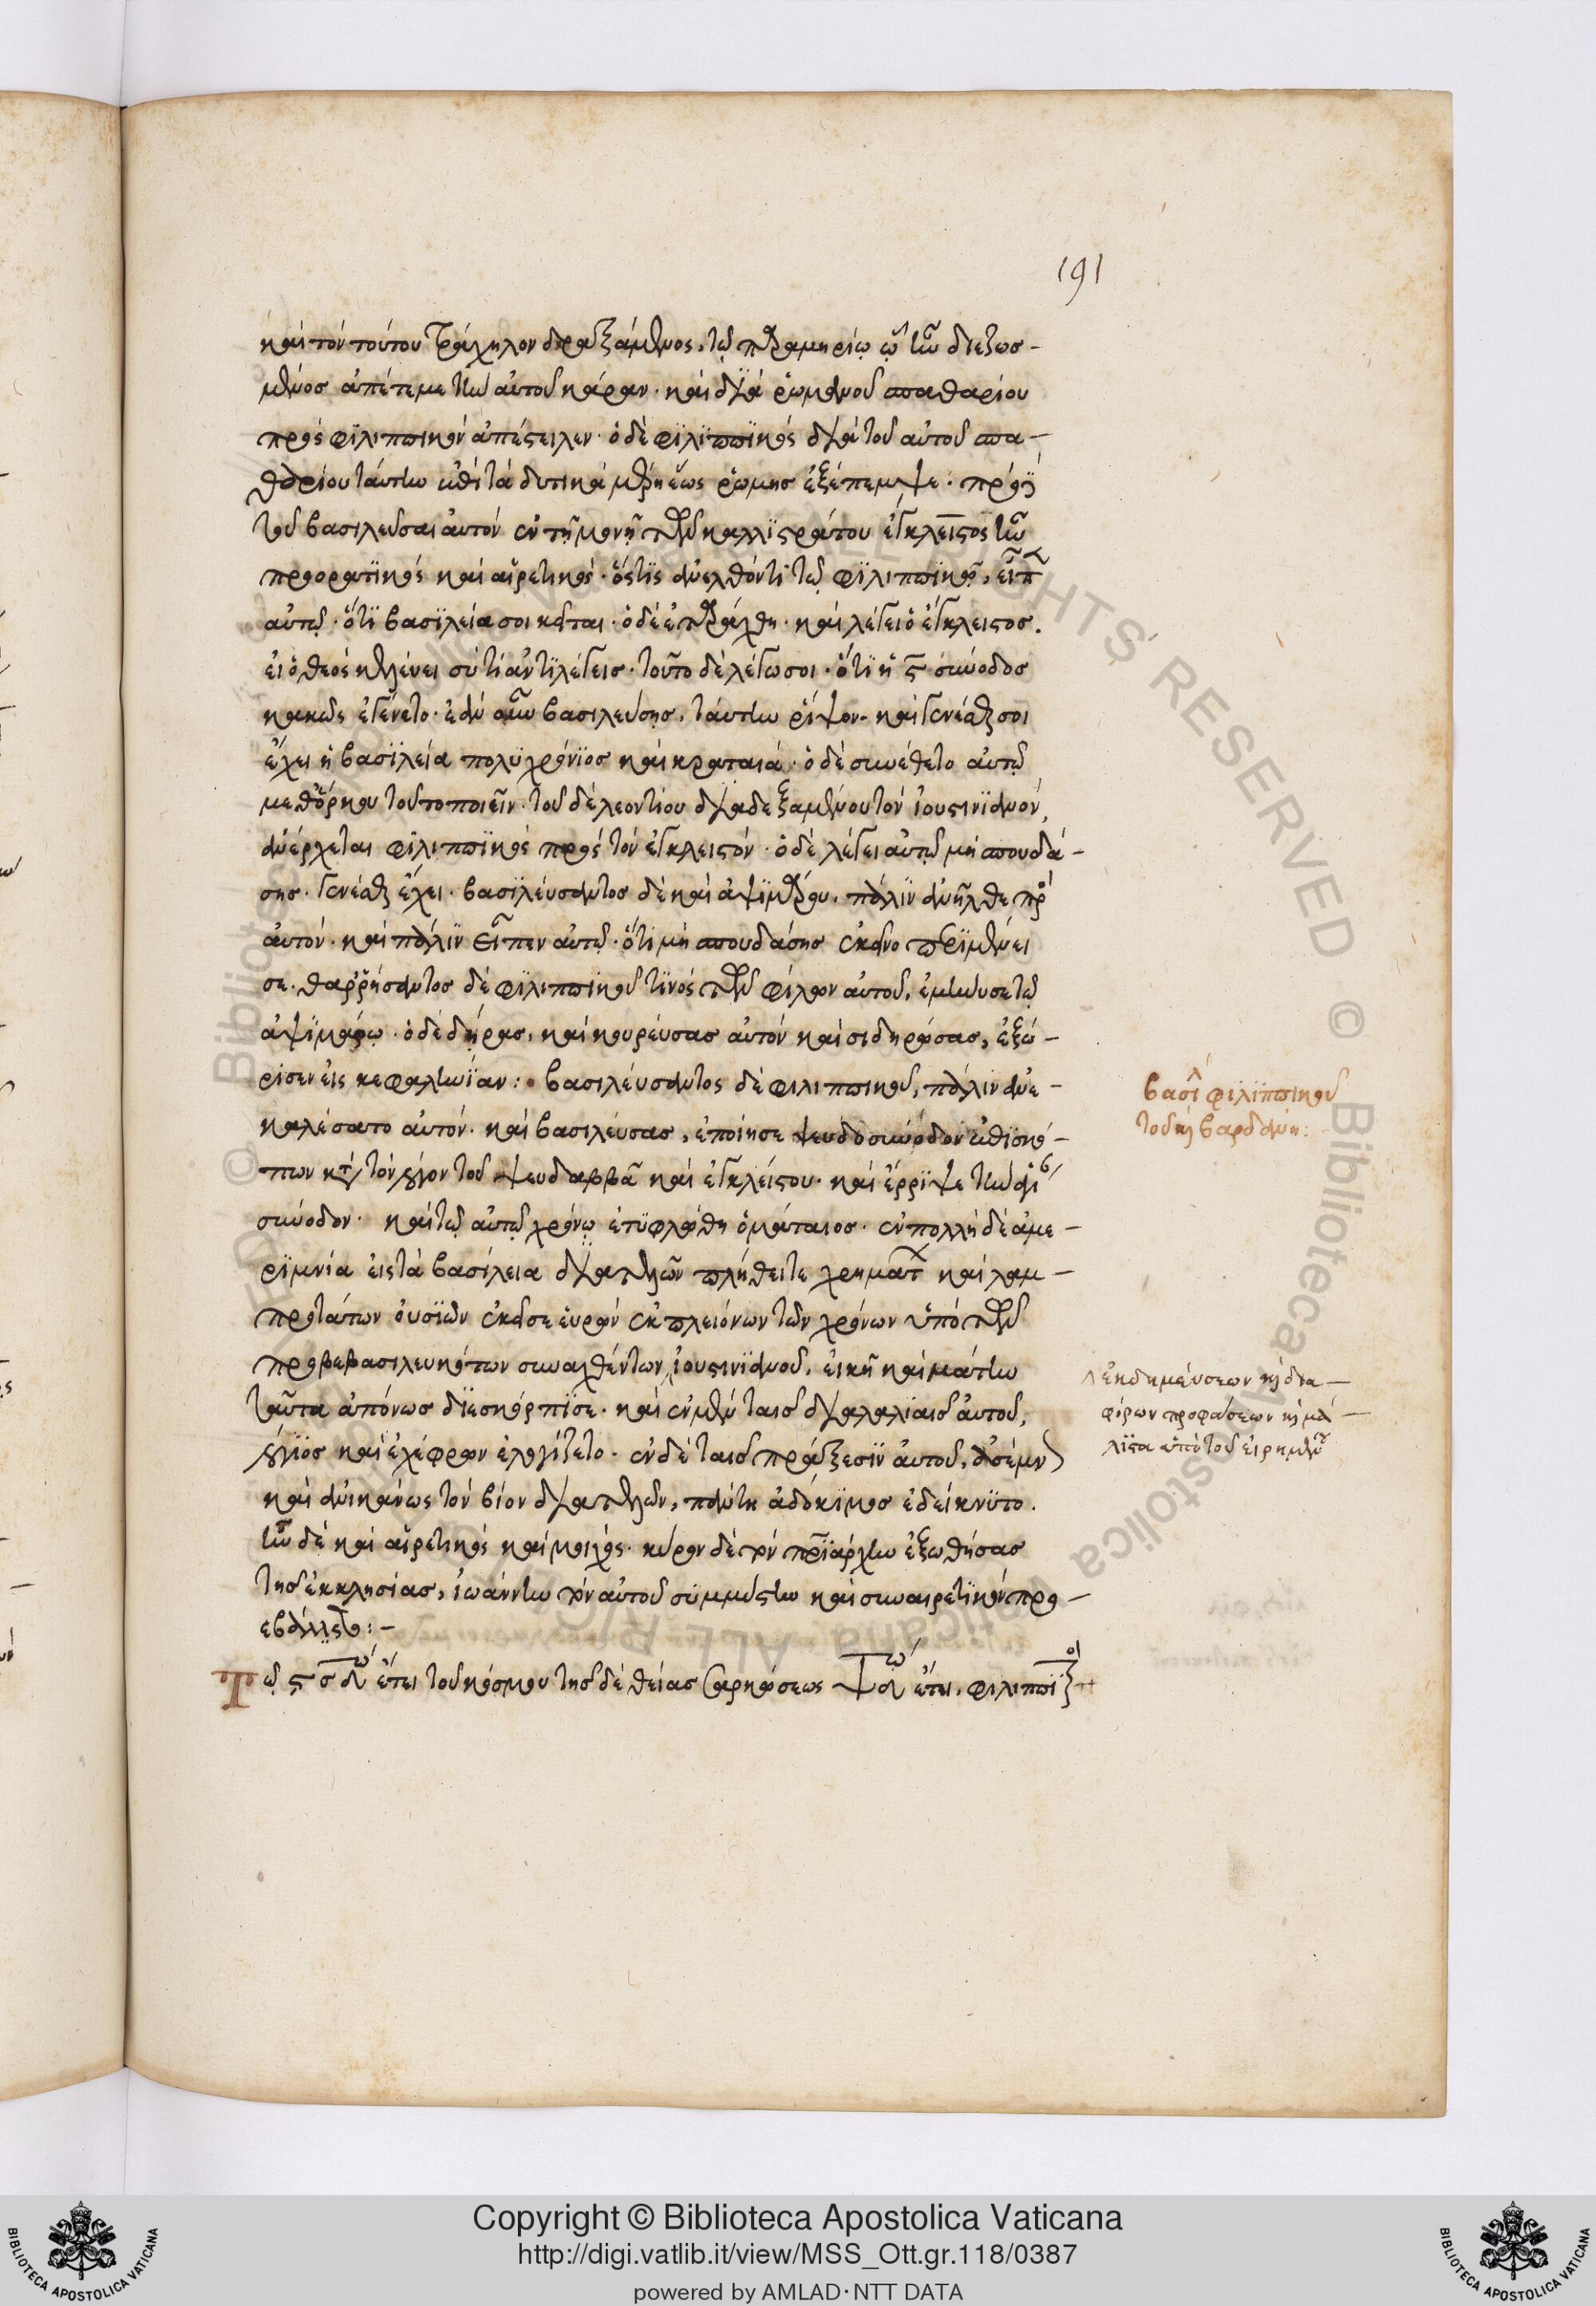 191
καὶ τὸν τούτου τράχηλον δραξάμενος, τῷ παραμηρίῳ ᾧ ἦν διεζωσ-
μένος ἀπέτεμε τὴν αὐτοῦ κάραν· καὶ διὰ ῥωμανοῦ σπαθαρίου
πρὸς φιλιππικὸν ἀπέστειλεν· ὁ δὲ φιλιππικὸς διὰ τοῦ αὐτοῦ σπα-
θαρίου ταύτην ἐπὶ τὰ δυτικὰ μέρη ἕως ῥώμης ἐξέπεμψε: πρὸ γὰρ
τοῦ βασιλεῦσαι αὐτὸν ἐν τῇ μονῇ τῶν καλλιστράτου ἔγκλειστος ἦν
προορατικὸς καὶ αἱρετικός· ὅστις ἀνελθόντι τῷ φιλιππικῷ, εἶπεν
αὐτῷ· ὅτι βασιλεία σοι κεῖται· ὁ δὲ ἐταράχθη· καὶ λέγει ὁ ἔγκλειστος.
εἰ ὁ θεὸς κελεύει σὺ τί ἀντιλέγεις· τοῦτο δὲ λέγω σοι· ὅτι ἡ ϛ σύνοδος
κακῶς ἐγένετο· ἐὰν οὖν βασιλεύσῃς, ταύτην ῥίψον· καὶ γενέσθαι σοι
ἔχει ἡ βασιλεία πολυχρόνιος καὶ κραταιά· ὁ δὲ συνέθετο αὐτῷ
μεθόρκου τοῦτο ποιεῖν· τοῦ δὲ λεοντίου διαδεξαμένου τὸν ἰουστινιανόν,
ἀνέρχεται φιλιππικὸς πρὸς τὸν ἔγκλειστόν· ὁ δὲ λέγει αὐτῷ μὴ σπουδά-
σης· γενέσθαι ἔχει· βασιλεύσαντος δὲ καὶ ἀψιμάρου, πάλιν ἀνῆλθε πρὸς
αὐτόν· καὶ πάλιν εἶπεν αὐτῷ· ὅτι μὴ σπουδάσης ἐκεῖνο περιμένει
σε. θαρρήσαντος δὲ φιλιππικοῦ τινὸς τῶν φίλων αὐτοῦ, ἐμήνυσε τῷ
ἀψιμάρῳ· ὁ δὲ δήρας, καὶ κουρεύσας αὐτὸν καὶ σιδηρώσας, ἐξώ-
ρισεν εἰς κεφαληνίαν: βασιλεύσαντος δὲ φιλιππικοῦ, πάλιν ἀνε-
καλέσατο αὐτόν· καὶ βασιλεύσας, ἐποίησε ψευδοσύνοδον ἐπισκό-
πων κατὰ τὸν λόγον τοῦ ψευδαββᾶ καὶ ἐγκλείστου· καὶ ἔρριψε τὴν ἁγίαν ϛ
σύνοδον· καὶ τῷ αὐτῷ χρόνῳ ἐτυφλώθη ὁ μάταιος· ἐν πολλῇ δὲ ἀμε-
ριμνία εἰς τὰ βασίλεια διατελῶν πλήθει τε χρημάτων καὶ λαμ-
προτάτων οὐσιῶν ἐκεῖσε εὑρὼν ἐκ πλειόνων τῶν χρόνων ὑπὸ τῶν
προβεβασιλευκότων συναχθέντων, ἰουστινιανοῦ, εἰκῆ καὶ μάτην
ταῦτα ἀπόνως διεσκόρπισε· καὶ ἐν μὲν ταῖς διαλαλίαις αὐτοῦ,
λόγιος καὶ ἐχέφρων ἐλογίζετο· ἐν δὲ ταῖς πράξεσιν αὐτοῦ, ἀσέμνως
καὶ ἀνικάνως τὸν βίον διατελῶν, πάντη ἀδόκιμος ἐδείκνυτο.
ἦν δὲ καὶ αἱρετικὸς καὶ μοιχός· κύρον δὲ τὸν πατριάρχην ἐξωθήσας
τῆς ἐκκλησίας, ἰωάννην τὸν αὐτοῦ συμμύστην καὶ συναιρετικὸν προ-
εβάλλετο:-
Τῷ ϛσδω ἔτει τοῦ κόσμου τῆς δὲ θείας σαρκώσεως ψδω ἔτει, φιλιππι
βασι φιλιππικοῦ
τοῦ καὶ βαρδάνη:
ἐκ δημεύσεων καὶ δια-
φόρων προφάσεων καὶ μά-
λιστα ὑπὸ τοῦ εἰρημένου
Copyright © Biblioteca Apostolica Vaticana
http://digi.vatlib.it/view/MSS_Ott.gr.118/0387
powered by AMLAD·NTT DATA
BIBLIOTECA APOSTOLICA VATICANA
BIBLIOTECA APOSTOLICA VATICANA